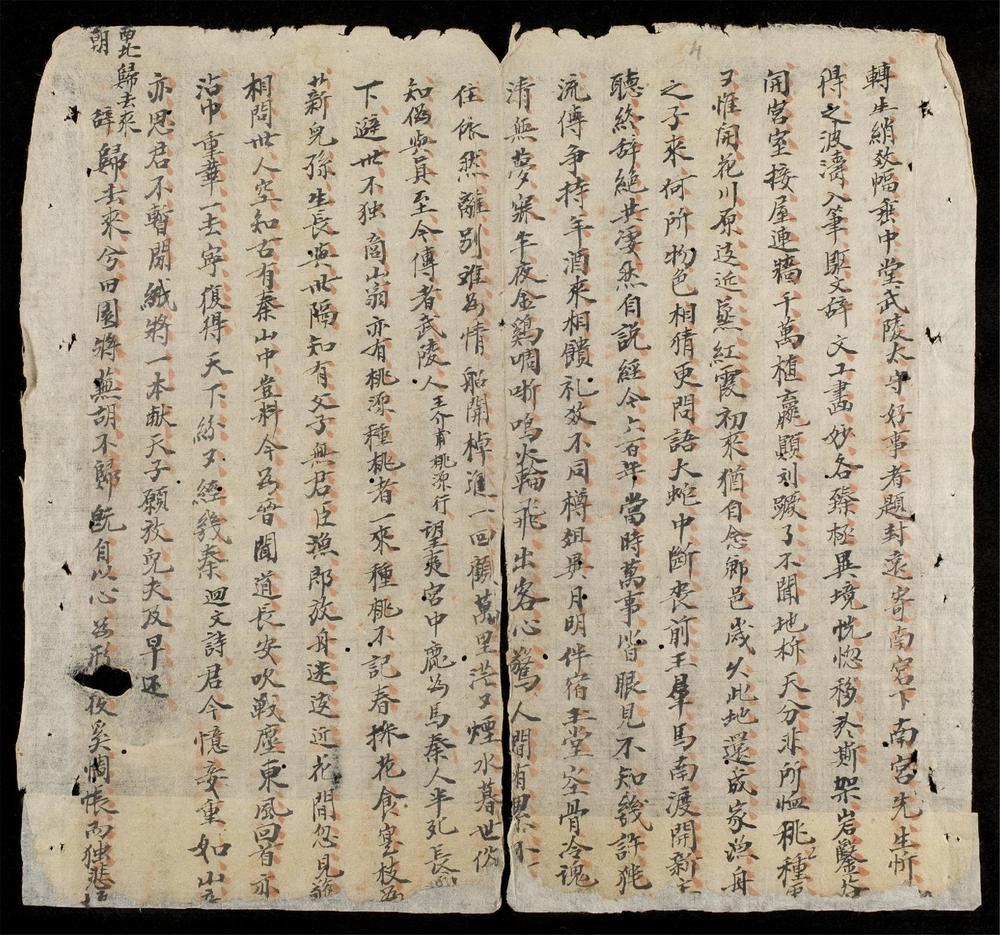 轉生綃数幅垂中堂武陵太守好事者題封遠寄南宮下南宮先生忻
得之波濤入筆駈文辞文工畵妙各臻極異境恍惚移於斯架岩鑿谷
開宮室接屋連墻千萬植嬴顛刘蹶了不聞地柝天分非所恤桃種
又惟開花川原迳近蒸紅霞初來猶自念鄉邑歲久此地還成家漁舟
之子來何所物色相猜更問語大蛇中断丧前王羣馬南渡開新主
聽終辞絶共凄然自説經今六百年當時萬事皆眼見不知幾許猶
流傳争持牛酒來相饋礼数不同樽俎異月明伴宿玉堂空骨冷魂
清無夢寐乍夜金鷄啁哳鳴火輪飛出客心驚人間有累不
住依然離別难為情船開棹進一回顧萬里茫々煙水暮世俗
知偽與真至今傳者武陵人王介甫桃源行望夷宮中鹿為馬秦人半死長
下避世不独商山翁亦有桃源種桃者一來種桃不記春採花食實枝為
薪兒孫生長與世隔知有父子無君臣漁郎放舟迷遠近花間忽見
相問世人空知古有秦山中豈料今為晉聞道長安吹戰塵東風回首亦
沾巾重華一去寧復得天下紛々經幾秦迴文詩君今憶妾重如山
亦思君不暫閑織將一本献天子願放兒夫及早还
朝歸去來辞歸去來兮田園將蕪胡不歸既自以心為形役奚惆悵而独悲